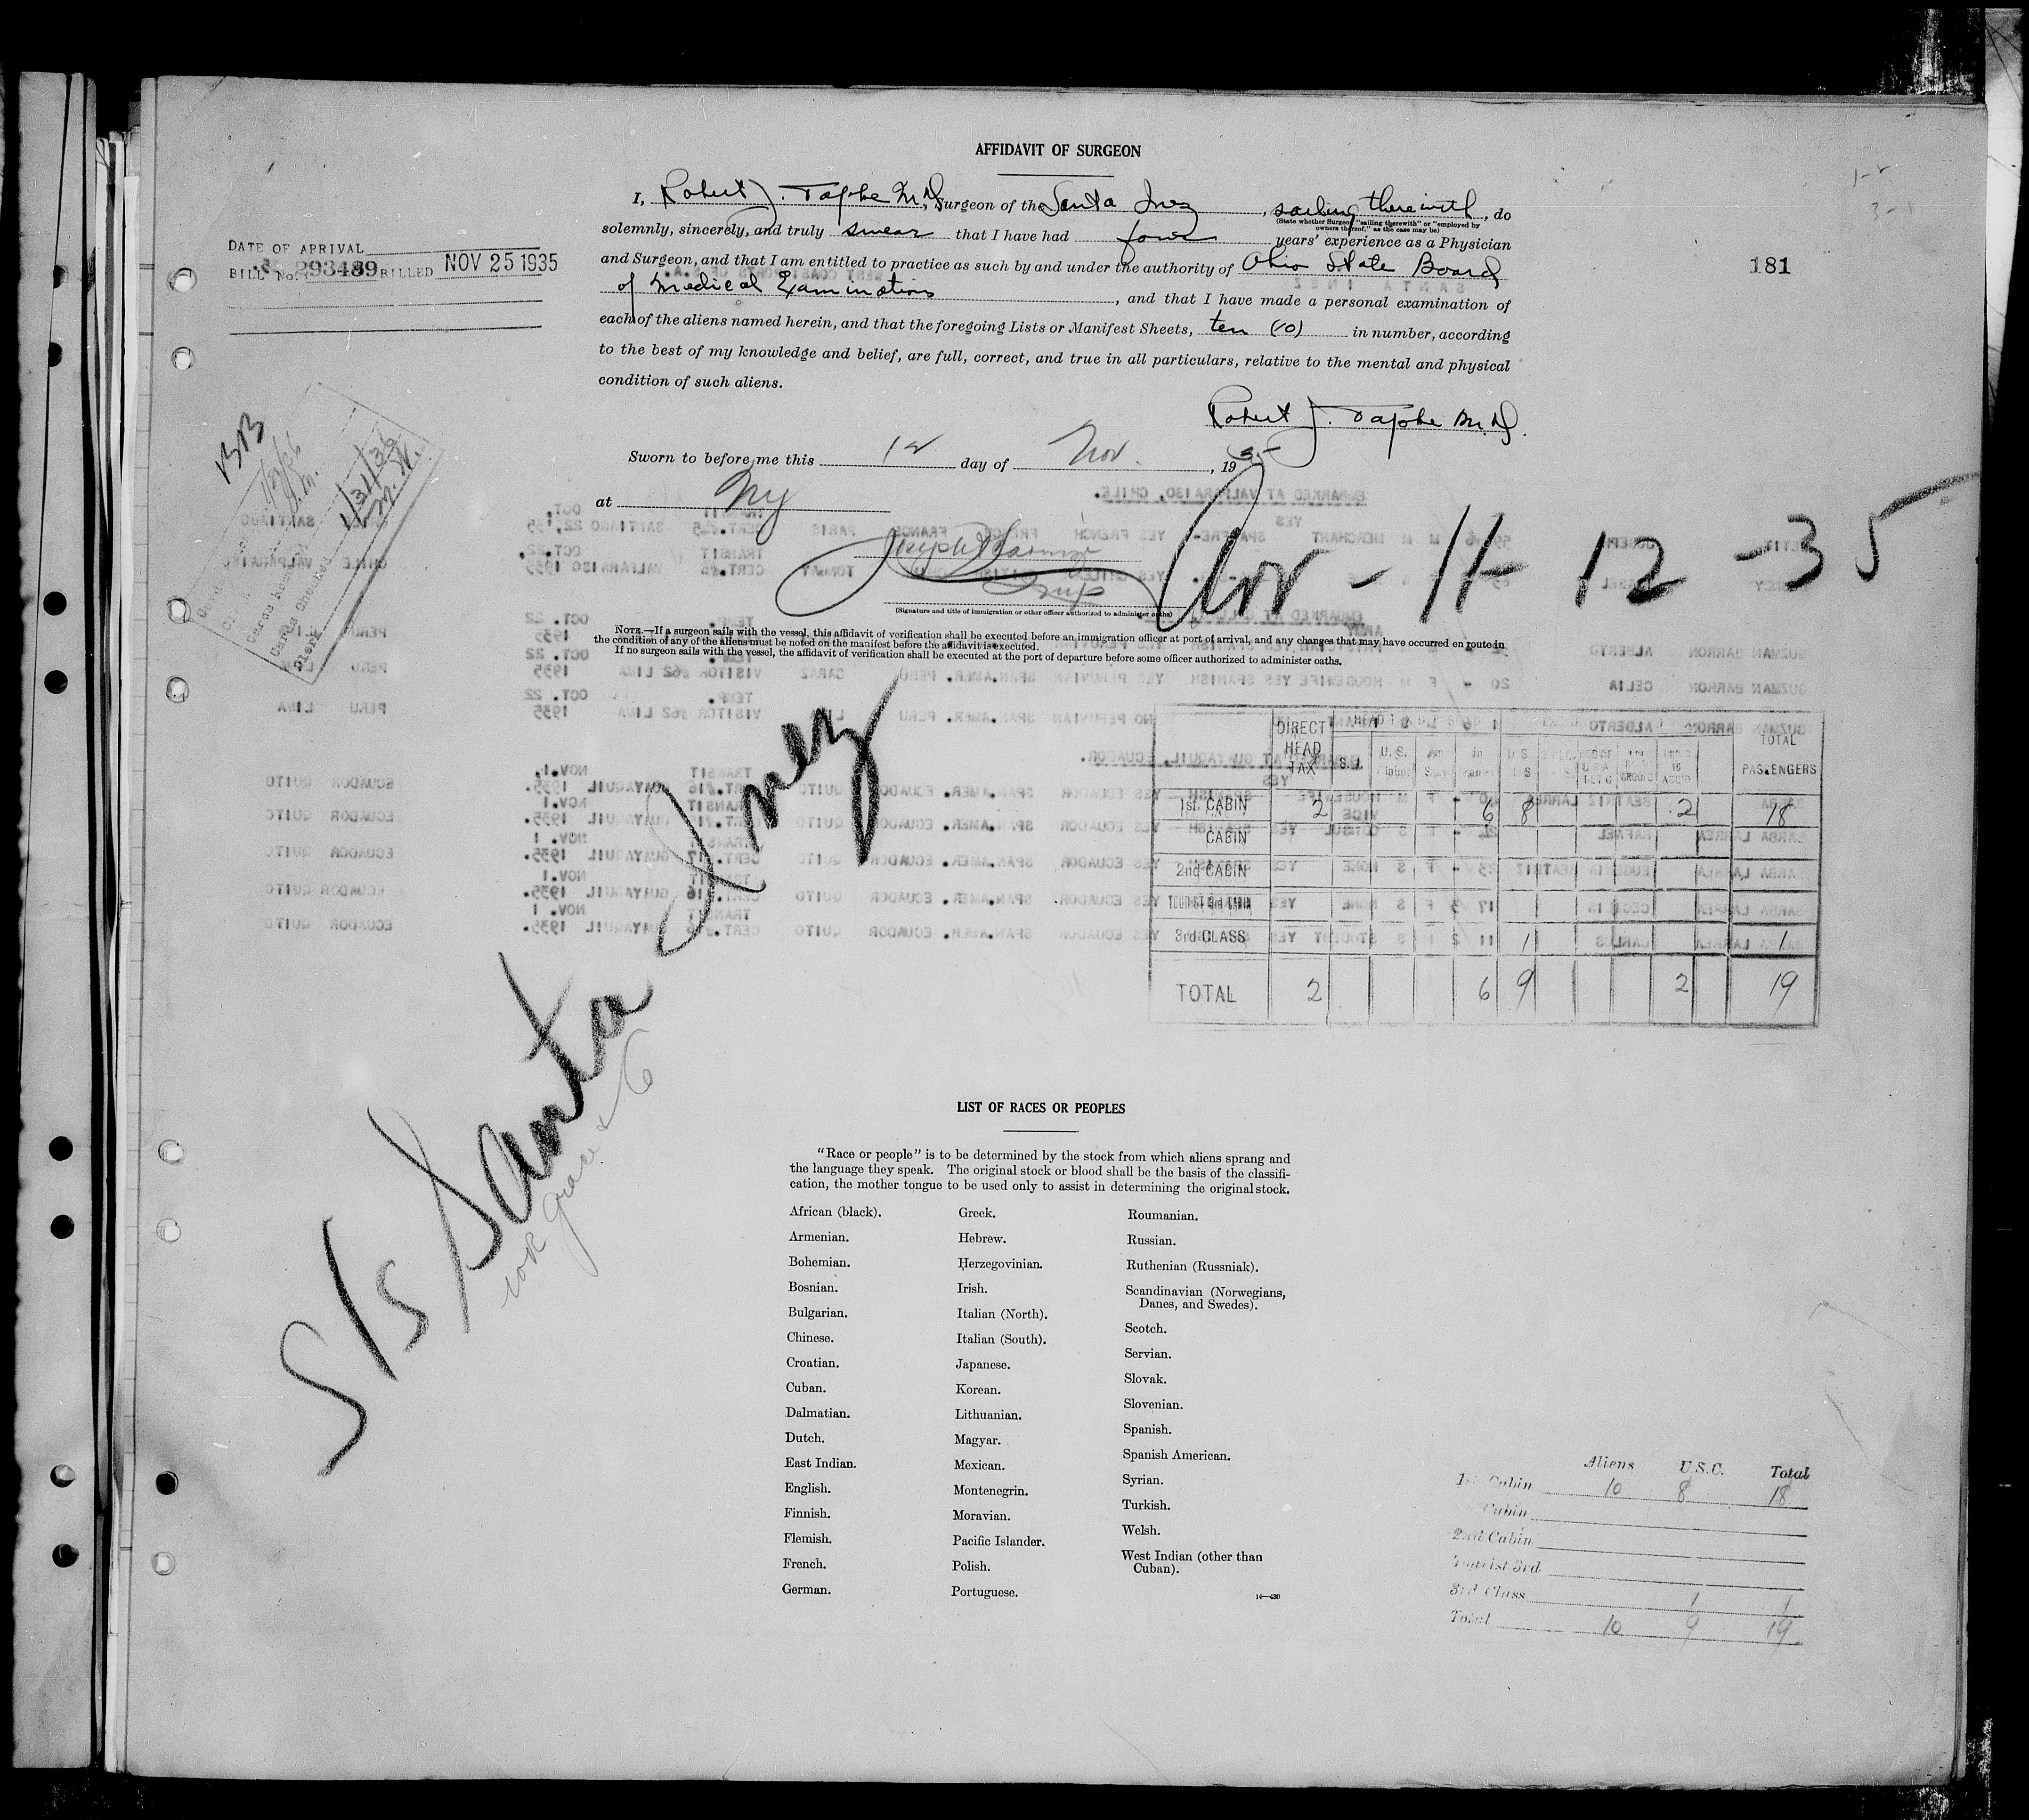 AFFIDAVIT OF SURGEON
I, Robert J. Taphe M.D., Surgeon of the Santa Inez, sailing therewith, do
(State whether Surgeon "sailing therewith" or "employed by owners thereof," as the case may be)
solemnly, sincerely, and truly swear that I have had four years' experience as a Physician
and Surgeon, and that I am entitled to practice as such by and under the authority of Ohio State Board
of Medical Examinations, and that I have made a personal examination of
each of the aliens named herein, and that the foregoing Lists or Manifest Sheets, ten (10) in number, according
to the best of my knowledge and belief, are full, correct, and true in all particulars, relative to the mental and physical
condition of such aliens.
Robert J. Taphe M.D.
Sworn to before me this 12 day of Nov., 1935
at NY
(Signature and title of immigration or other officer authorized to administer oaths)
NOTE.—If a surgeon sails with the vessel, this affidavit of verification shall be executed before an immigration officer at port of arrival, and any changes that may have occurred en route in
the condition of any of the aliens must be noted on the manifest before the affidavit is executed.
If no surgeon sails with the vessel, the affidavit of verification shall be executed at the port of departure before some officer authorized to administer oaths.
DATE OF ARRIVAL
BILL No. 293489 BILLED NOV 25 1935
181
BB
1/31/36
Cards Checked
Clerk
Arr - 11- 12 - 35
S/S Santa Inez
DIRECT HEAD TAX TOTAL PASSENGERS
1st. CABIN 2 6 8 2 18
CABIN
2nd CABIN
TOURIST 3rd CABIN
3rd CLASS 1 1
TOTAL 2 6 9 2 19
LIST OF RACES OR PEOPLES
"Race or people" is to be determined by the stock from which aliens sprang and
the language they speak. The original stock or blood shall be the basis of the classifi-
cation, the mother tongue to be used only to assist in determining the original stock.
African (black).
Armenian.
Bohemian.
Bosnian.
Bulgarian.
Chinese.
Croatian.
Cuban.
Dalmatian.
Dutch.
East Indian.
English.
Finnish.
Flemish.
French.
German.
Greek.
Hebrew.
Herzegovinian.
Irish.
Italian (North).
Italian (South).
Japanese.
Korean.
Lithuanian.
Magyar.
Mexican.
Montenegrin.
Moravian.
Pacific Islander.
Polish.
Portuguese.
Roumanian.
Russian.
Ruthenian (Russniak).
Scandinavian (Norwegians,
Danes, and Swedes).
Scotch.
Servian.
Slovak.
Slovenian.
Spanish.
Spanish American.
Syrian.
Turkish.
Welsh.
West Indian (other than
Cuban).
Aliens U.S.C. Total
1st Cabin 10 8 18
Cabin
2nd Cabin
Tourist 3rd
3rd Class 1 1
Total 10 9 19